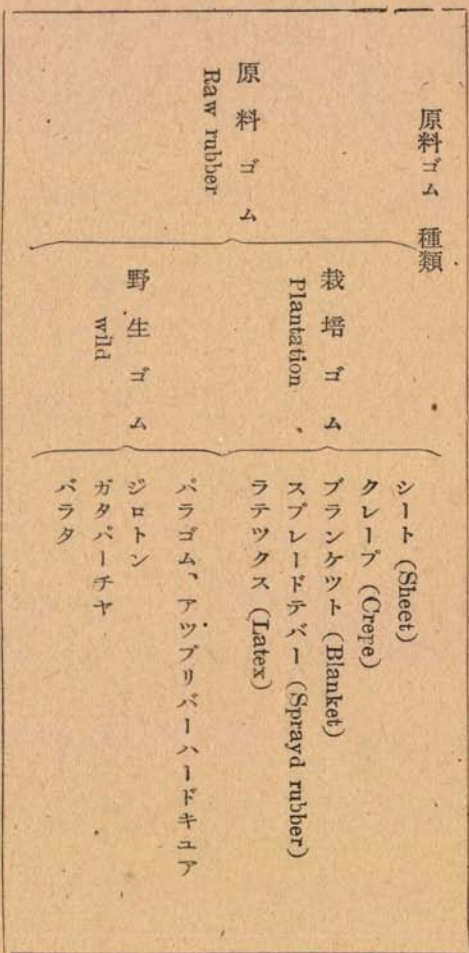 原料ゴム 種類
原料ゴム
Raw rubber
栽培ゴム
Plantation
シート (Sheet)
クレープ (Crepe)
ブランケツト (Blanket)
スプレードラバー (Sprayd rubber)
ラテツクス (Latex)
野生ゴム
wild
パラゴム、アツプリバーハードキュア
ジロトン
ガタパーチヤ
バラタ